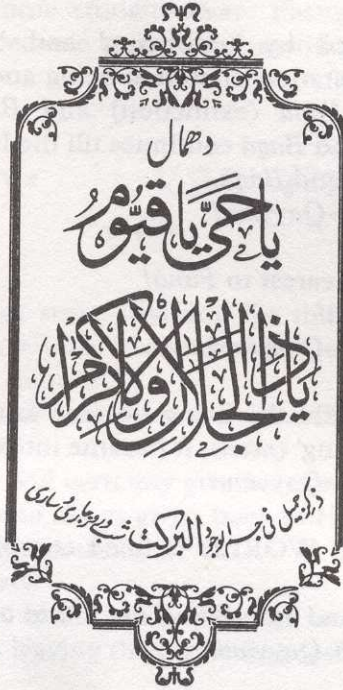 دھمال
یا حیّ یا قیّوم
یا ذالجلال والاکرام
ذکر جمیل فی جسد ابو البرکت شب و روز جاری و ساری